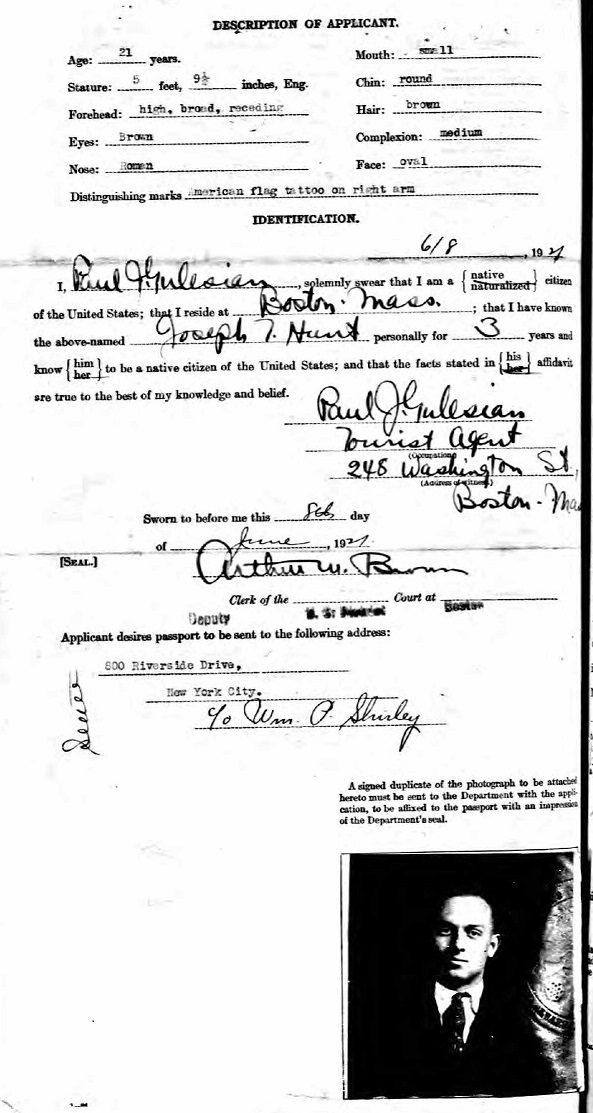 DESCRIPTION OF APPLICANT.
Age: 21 years.
Mouth: small
Stature: 5 feet, 9½ inches, Eng.
Chin: round
Forehead: high, broad, receding
Hair: brown
Eyes: Brown
Complexion: medium
Nose: Roman
Face: oval
Distinguishing marks American flag tattoo on right arm
IDENTIFICATION.
6/8, 1921
I, Paul J. Gulesian, solemnly swear that I am a {native naturalized} citizen
of the United States; that I reside at Boston - Mass.; that I have known
the above-named Joseph T. Hunt personally for 3 years and
know {him her} to be a native citizen of the United States; and that the facts stated in {his her} affidavit
are true to the best of my knowledge and belief.
Paul J. Gulesian
Tourist Agent
(Occupation)
248 Washington St,
(Address of witness)
Boston - Mass
Sworn to before me this 8th day
of June, 1921
[SEAL.]
Arthur M. Brown
Deputy Clerk of the U. S. District Court at Boston
Applicant desires passport to be sent to the following address:
800 Riverside Drive,
New York City.
c/o Wm. P. Shirley
A signed duplicate of the photograph to be attached
hereto must be sent to the Department with the appli-
cation, to be affixed to the passport with an impression
of the Department's seal.